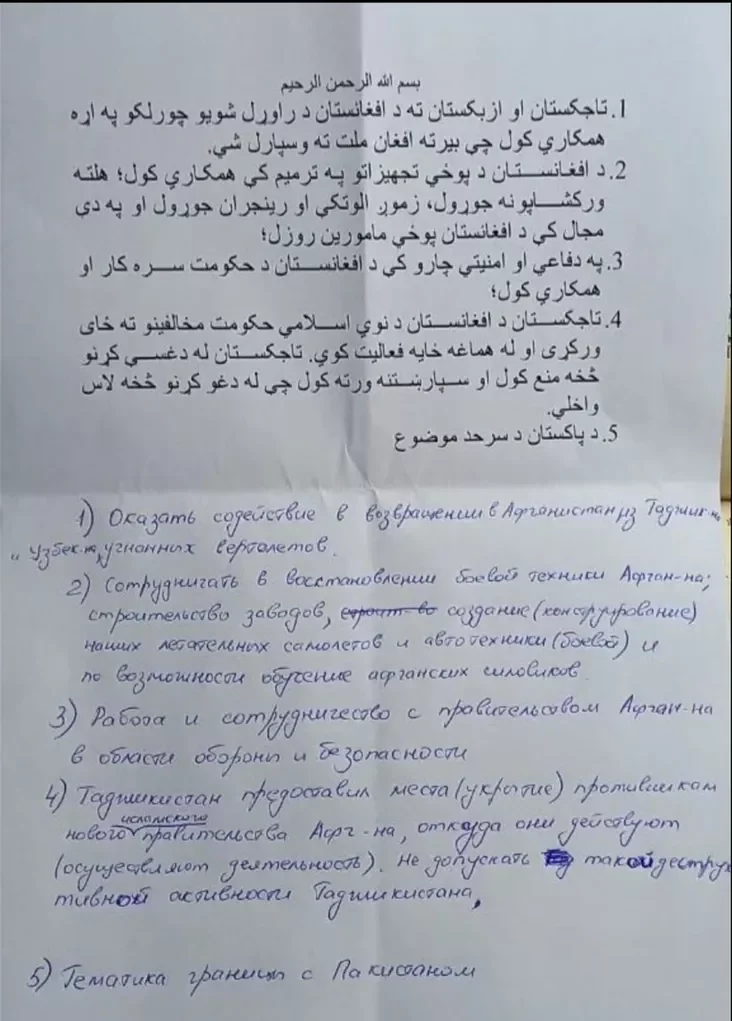 بسم الله الرحمن الرحيم
1. تاجکستان او ازبکستان ته د افغانستان د راوړل شويو چورلکو په اړه
همکاري کول چي بيرته افغان ملت ته وسپارل شي.
2. د افغانستان د پوځي تجهيزاتو په ترميم کي همکاري کول؛ هلته
ورکشاپونه جوړول، زموږ الوتکي او رينجران جوړول او په دې
مجال کي د افغانستان پوځي مامورين روزل؛
3. په دفاعي او امنيتي چارو کي د افغانستان د حکومت سره کار او
همکاري کول؛
4. تاجکستان د افغانستان د نوي اسلامي حکومت مخالفينو ته ځای
ورکړی او له هماغه ځايه فعاليت کوي. تاجکستان له دغسي کړنو
څخه منع کول او سپارښتنه ورته کول چي له دغو کړنو څخه لاس
واخلي.
5. د پاکستان د سرحد موضوع
1) Оказать содействие в возвращении в Афганистан из Таджик-на
и узбек-на, угнанных вертолетов.
2) Сотрудничать в восстановлении боевой техники Афган-на;
строительство заводов, строит-во создание (конструирование)
наших летательных самолетов и автотехники (боевой) и
по возможности обучение афганских силовиков.
3) Работа и сотрудничество с правительством Афган-на
в области обороны и безопасности
4) Таджикистан предоставил места (укрытие) противникам
нового исламского правительства Афг-на, откуда они действуют
(осуществляют деятельность). Не допускать такой деструк
тивной активности Таджикистана,
5) Тематика границы с Пакистаном